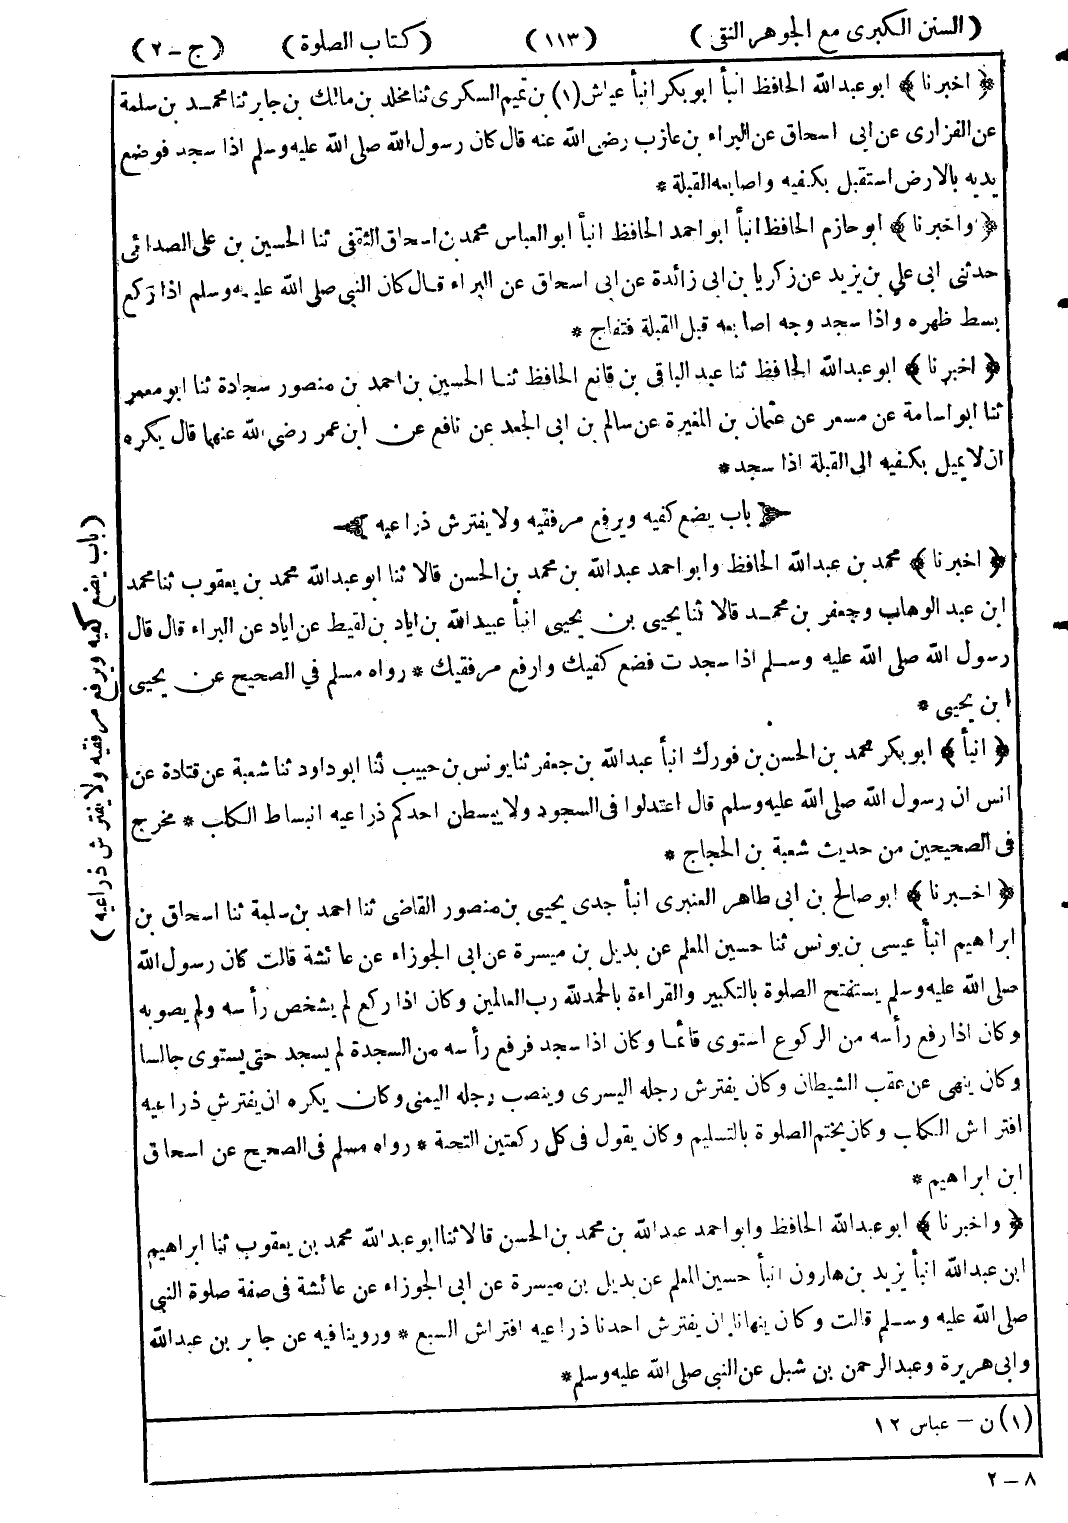 (السنن الكبرى مع الجوهر النقى) (١١٣) (كتاب الصلوة) (ج - ٢)
﴿ اخبرنا ﴾ ابو عبدالله الحافظ انبأ ابو بكر انبأ عياش (١) بن تميم السكرى ثنا مخلد بن مالك بن جابر ثنا محمد بن سلمة
عن الفزارى عن ابى اسحاق عن البراء بن عازب رضى الله عنه قال كان رسول الله صلى الله عليه وسلم اذا سجد فوضع
يديه بالارض استقبل بكفيه واصابعه القبلة *
﴿ واخبرنا ﴾ ابو حازم الحافظ انبأ ابو احمد الحافظ انبأ ابو العباس محمد بن اسحاق الثقفى ثنا الحسين بن على الصدائى
حدثنى ابى علي بن يزيد عن زكريا بن ابى زائدة عن ابى اسحاق عن البراء قال كان النبى صلى الله عليه وسلم اذا ركع
بسط ظهره واذا سجد وجه اصابعه قبل القبلة فتفاج *
﴿ اخبرنا ﴾ ابو عبدالله الحافظ ثنا عبد الباقى بن قانع الحافظ ثنا الحسين بن احمد بن منصور سجادة ثنا ابو معمر
ثنا ابو اسامة عن مسعر عن عثمان بن المغيرة عن سالم بن ابى الجعد عن نافع عن ابن عمر رضى الله عنهما قال يكره
ان لا يميل بكفيه الى القبلة اذا سجد *
﴿ باب يضع كفيه ويرفع مرفقيه ولا يفترش ذراعيه ﴾
﴿ اخبرنا ﴾ محمد بن عبدالله الحافظ وابو احمد عبدالله بن محمد بن الحسن قالا ثنا ابو عبدالله محمد بن يعقوب ثنا محمد
ابن عبد الوهاب وجعفر بن محمد قالا ثنا يحيى بن يحيى انبأ عبيدالله بن اياد بن لقيط عن اياد عن البراء قال قال
رسول الله صلى الله عليه وسلم اذا سجدت فضع كفيك وارفع مرفقيك * رواه مسلم في الصحيح عن يحيى
ابن يحيى *
﴿ انبأ ﴾ ابو بكر محمد بن الحسن بن فورك انبأ عبدالله بن جعفر ثنا يونس بن حبيب ثنا ابو داود ثنا شعبة عن قتادة عن
انس ان رسول الله صلى الله عليه وسلم قال اعتدلوا فى السجود ولا يبسطن احدكم ذراعيه انبساط الكلب * مخرج
فى الصحيحين من حديث شعبة بن الحجاج *
﴿ اخبرنا ﴾ ابو صالح بن ابى طاهر العنبرى انبأ جدى يحيى بن منصور القاضى ثنا احمد بن سلمة ثنا اسحاق بن
ابراهيم انبأ عيسى بن يونس ثنا حسين المعلم عن بديل بن ميسرة عن ابى الجوزاء عن عائشة قالت كان رسول الله
صلى الله عليه وسلم يستفتح الصلوة بالتكبير والقراءة بالحمد لله رب العالمين وكان اذا ركع لم يشخص رأسه ولم يصوبه
وكان اذا رفع رأسه من الركوع استوى قائما وكان اذا سجد فرفع رأسه من السجدة لم يسجد حتى يستوى جالسا
وكان ينهى عن عقب الشيطان وكان يفترش رجله اليسرى وينصب رجله اليمنى وكان يكره ان يفترش ذراعيه
افتراش الكلب وكان يختم الصلوة بالتسليم وكان يقول فى كل ركعتين التحية * رواه مسلم فى الصحيح عن اسحاق
ابن ابراهيم *
﴿ واخبرنا ﴾ ابو عبدالله الحافظ وابو احمد عبدالله بن محمد بن الحسن قالا ثنا ابو عبدالله محمد بن يعقوب ثنا ابراهيم
ابن عبدالله انبأ يزيد بن هارون انبأ حسين المعلم عن بديل بن ميسرة عن ابى الجوزاء عن عائشة فى صفة صلوة النبى
صلى الله عليه وسلم قالت وكان ينهانا ان يفترش احدنا ذراعيه افتراش السبع * وروينا فيه عن جابر بن عبدالله
وابى هريرة وعبد الرحمن بن شبل عن النبى صلى الله عليه وسلم *
(١) ن - عباس ١٢
٢ - ٨
(باب يضع كفيه ويرفع مرفقيه ولا يفترش ذراعيه)